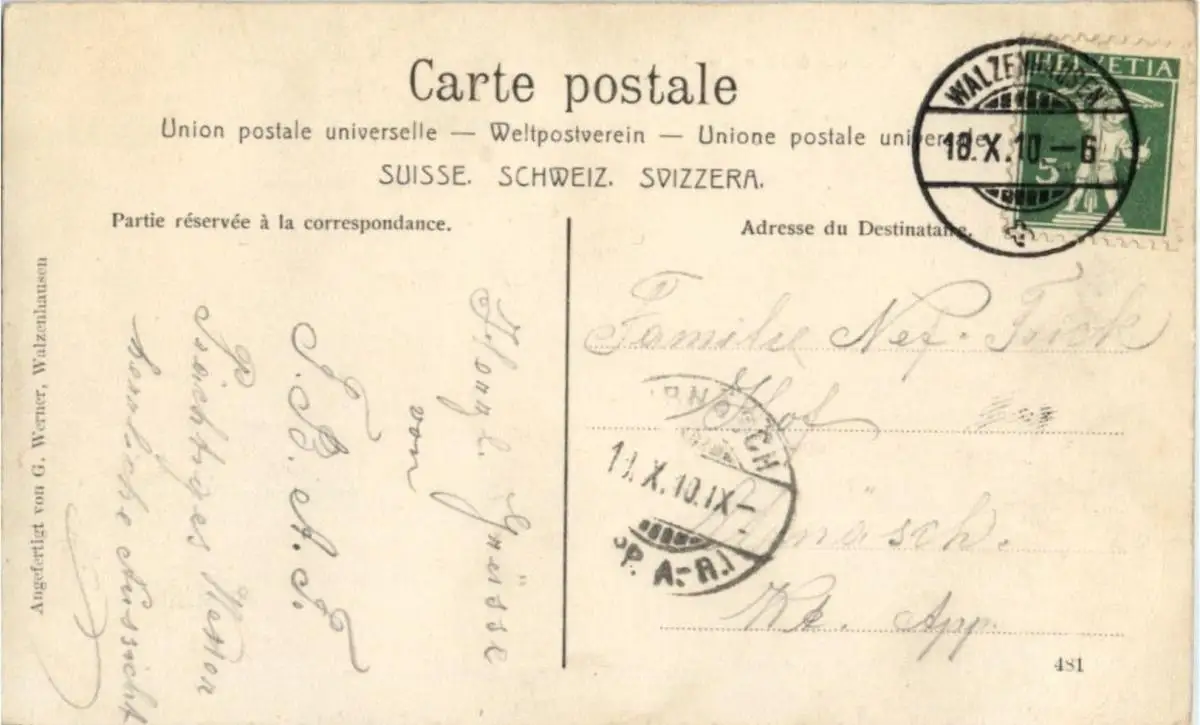 Carte postale
Union postale universelle — Weltpostverein — Unione postale universale
SUISSE. SCHWEIZ. SVIZZERA.
Partie réservée à la correspondance.
Adresse du Destinataire.
HELVETIA
5
WALZENHAUSEN
18.X.10–6
Angefertigt von G. Werner, Walzenhausen
Grüsse
von
Prächtiges Wetter
herrliche Aussicht
Familie Nef-Frick
Hof
Urnäsch.
Kt. App.
URNÄSCH
X.10.IX–
A.-R.
481